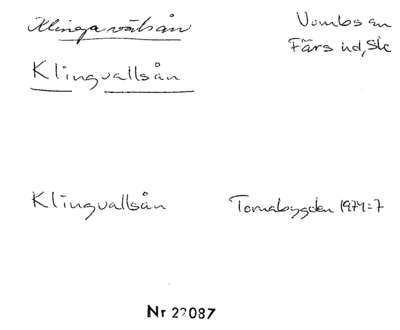 Klingavälsån
Vombs sn
Färs hd, Sk
Klingvallsån
Klingvallsån
Tornabygden 1974:7
Nr 22087